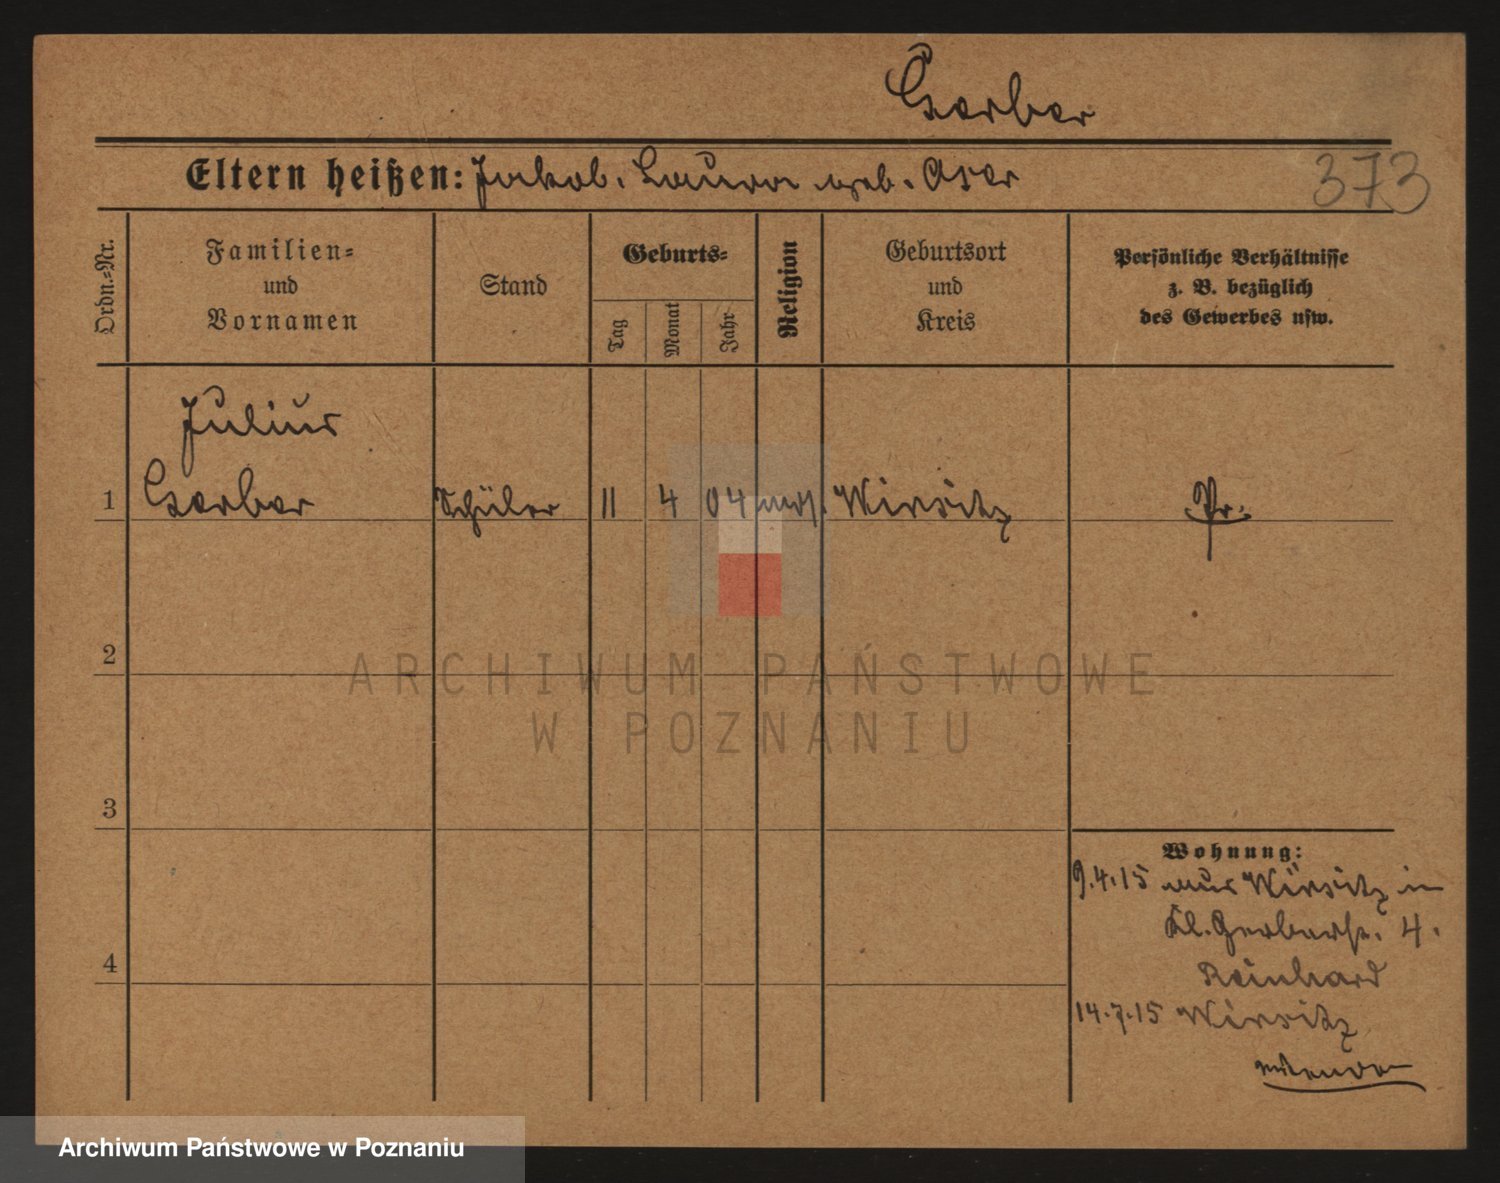 Gerber
Eltern heißen: Jakob. Laura geb. Aser
373
Ordn.-Nr.
Familien-
und
Vornamen
Stand
Geburts-
Tag
Monat
Jahr
Religion
Geburtsort
und
Kreis
Persönliche Verhältnisse
z. B. bezüglich
des Gewerbes usw.
Julius
1 Gerber Schüler 11 4 04 mos. Wirsitz Pr.
2
ARCHIWUM PAŃSTWOWE
W POZNANIU
3
Wohnung:
9.4.15 aus Wirsitz in
Kl. Gerberstr. 4.
Reinhard
4
14.7.15 Wirsitz
Archiwum Państwowe w Poznaniu